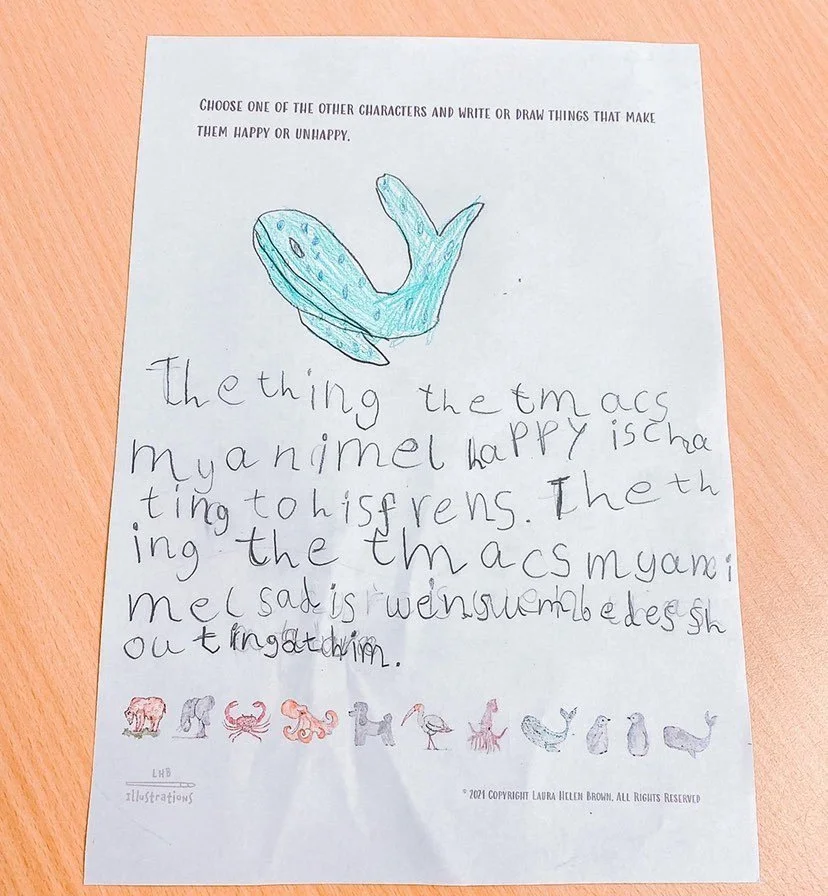 CHOOSE ONE OF THE OTHER CHARACTERS AND WRITE OR DRAW THINGS THAT MAKE
THEM HAPPY OR UNHAPPY.
The thing the tmacs
my animel happy is cha
ting to his frens. The th
ing the tmacs my ani
mel sad is wen sumbede s sh
outing at him.
LHB
Illustrations
© 2021 COPYRIGHT LAURA HELEN BROWN. ALL RIGHTS RESERVED